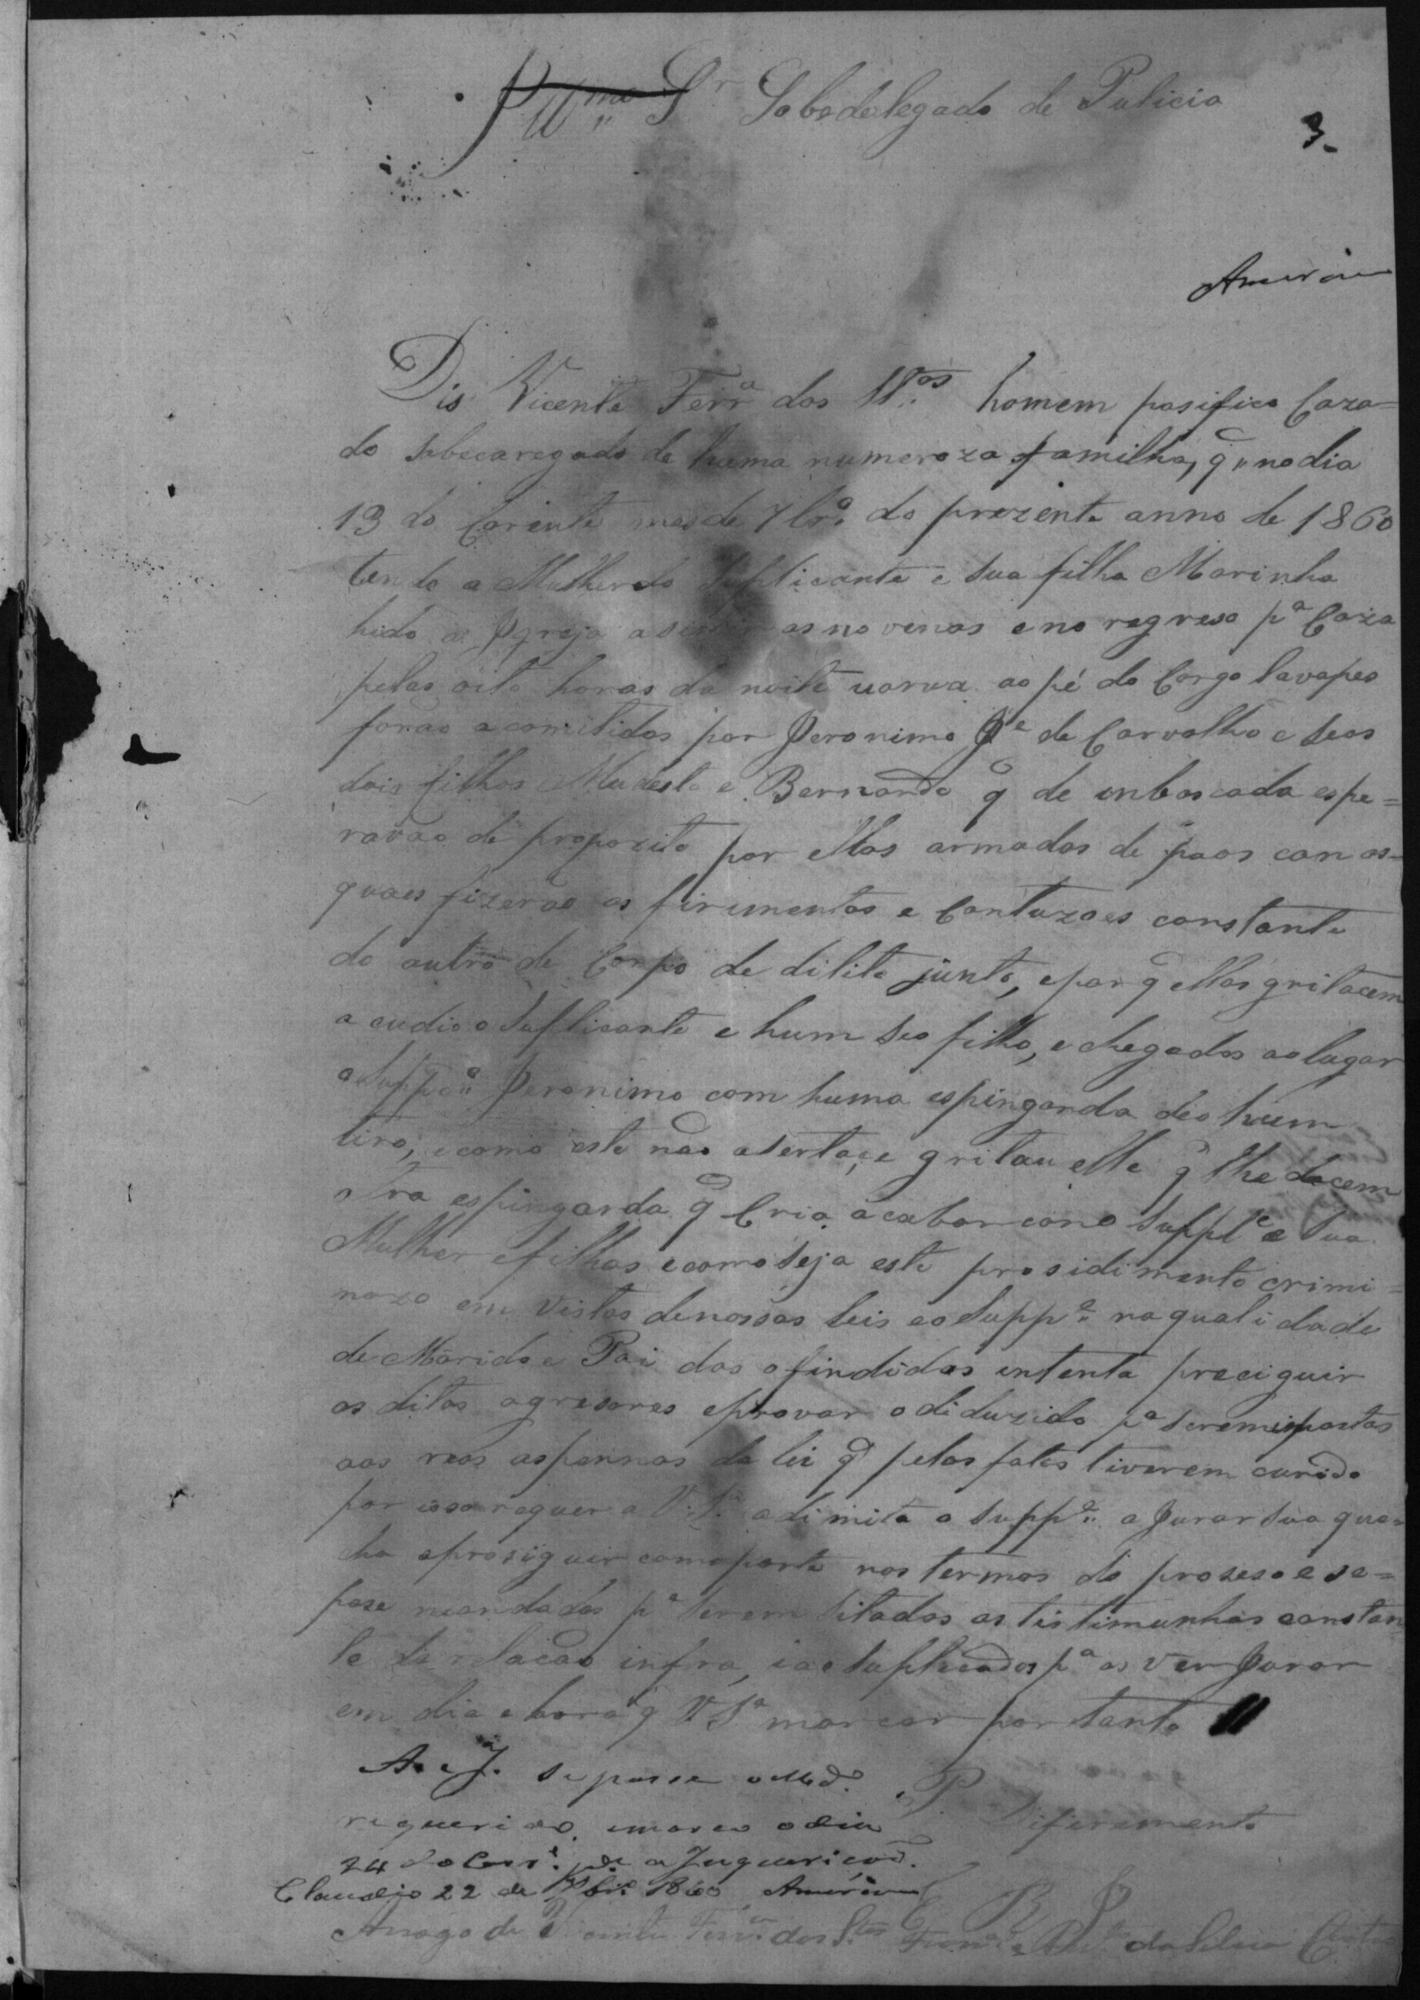 Illmo Sr Sobdelegado de Pulicia
3
Americo
Dis Vicente Ferra dos Stos homem pasifico Caza=
do sobecaregado de huma numeroza familha, q no dia
13 do Corente mes de 7bro do prezente anno de 1860
tendo a Mulher do Suplicante e sua filha Marinha
hido a Igreja as novenas e no regreso pa Caza
pelas oito horas da noite ao pé do Corgo lavapes
forão acomitidas por Jeronimo Je de Carvalho e seos
dois filhos Modesto e Bernardo q de enboscada espe=
ravão de propozito por ellas armados de paos con as
quaes fizerão os firimentos e Contuzoes constante
do autro de Corpo de dilito junto, e por q ellas gritacem
acudio o Suplicante e hum seo filho, e chegados ao lugar
o Suppdo Jeronimo com huma espingarda deo hum
tiro, e como este não asertaçe gritou elle q lhe dacem
otra espingarda q Cria acabar con o Supple e sua
Mulher e filhos e como seja este prosidimento crimi=
nozo em vistas de nossas leis e o Suppe na qualidade
de Marido e Pai das ofindidas intenta preciguir
os ditos agresores e provar o diduzido pa serem inpostas
aos reos as pennas da lei q pelos fatos tiverem
por isso requer a V. Sa adimita o Suppe a Jurar sua que=
cha e prosiguir como parte nos termos do proseso e se=
pase mandados pa serem sitados as tistimunhas constan
te da relacão infra, e os suplicados pa as ver Jurar
em dia e hora q V Sa marcar por tanto
A. e J. se passe o Md.
requerido, e marco o dia
P. Difirimento
24 do Corre
Claudio 22 de 7bro 1860 Americo
E R M
Arrogo de Vicente Ferra dos Stos da Silva